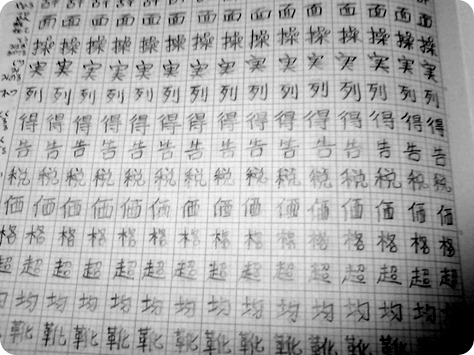 面面面面面面面面面面面面面面
操操操操操操操操操操操操操操
実実実実実実実実実実実実実実
列列列列列列列列列列列列列列列
得得得得得得得得得得得得得得得
告告告告告告告告告告告告告告告
税税税税税税税税税税税税税税税
価価価価価価価価価価価価価価価
格格格格格格格格格格格格格格格
超超超超超超超超超超超超超超超
均均均均均均均均均均均均均均
靴靴靴靴靴靴靴靴靴靴靴靴靴靴